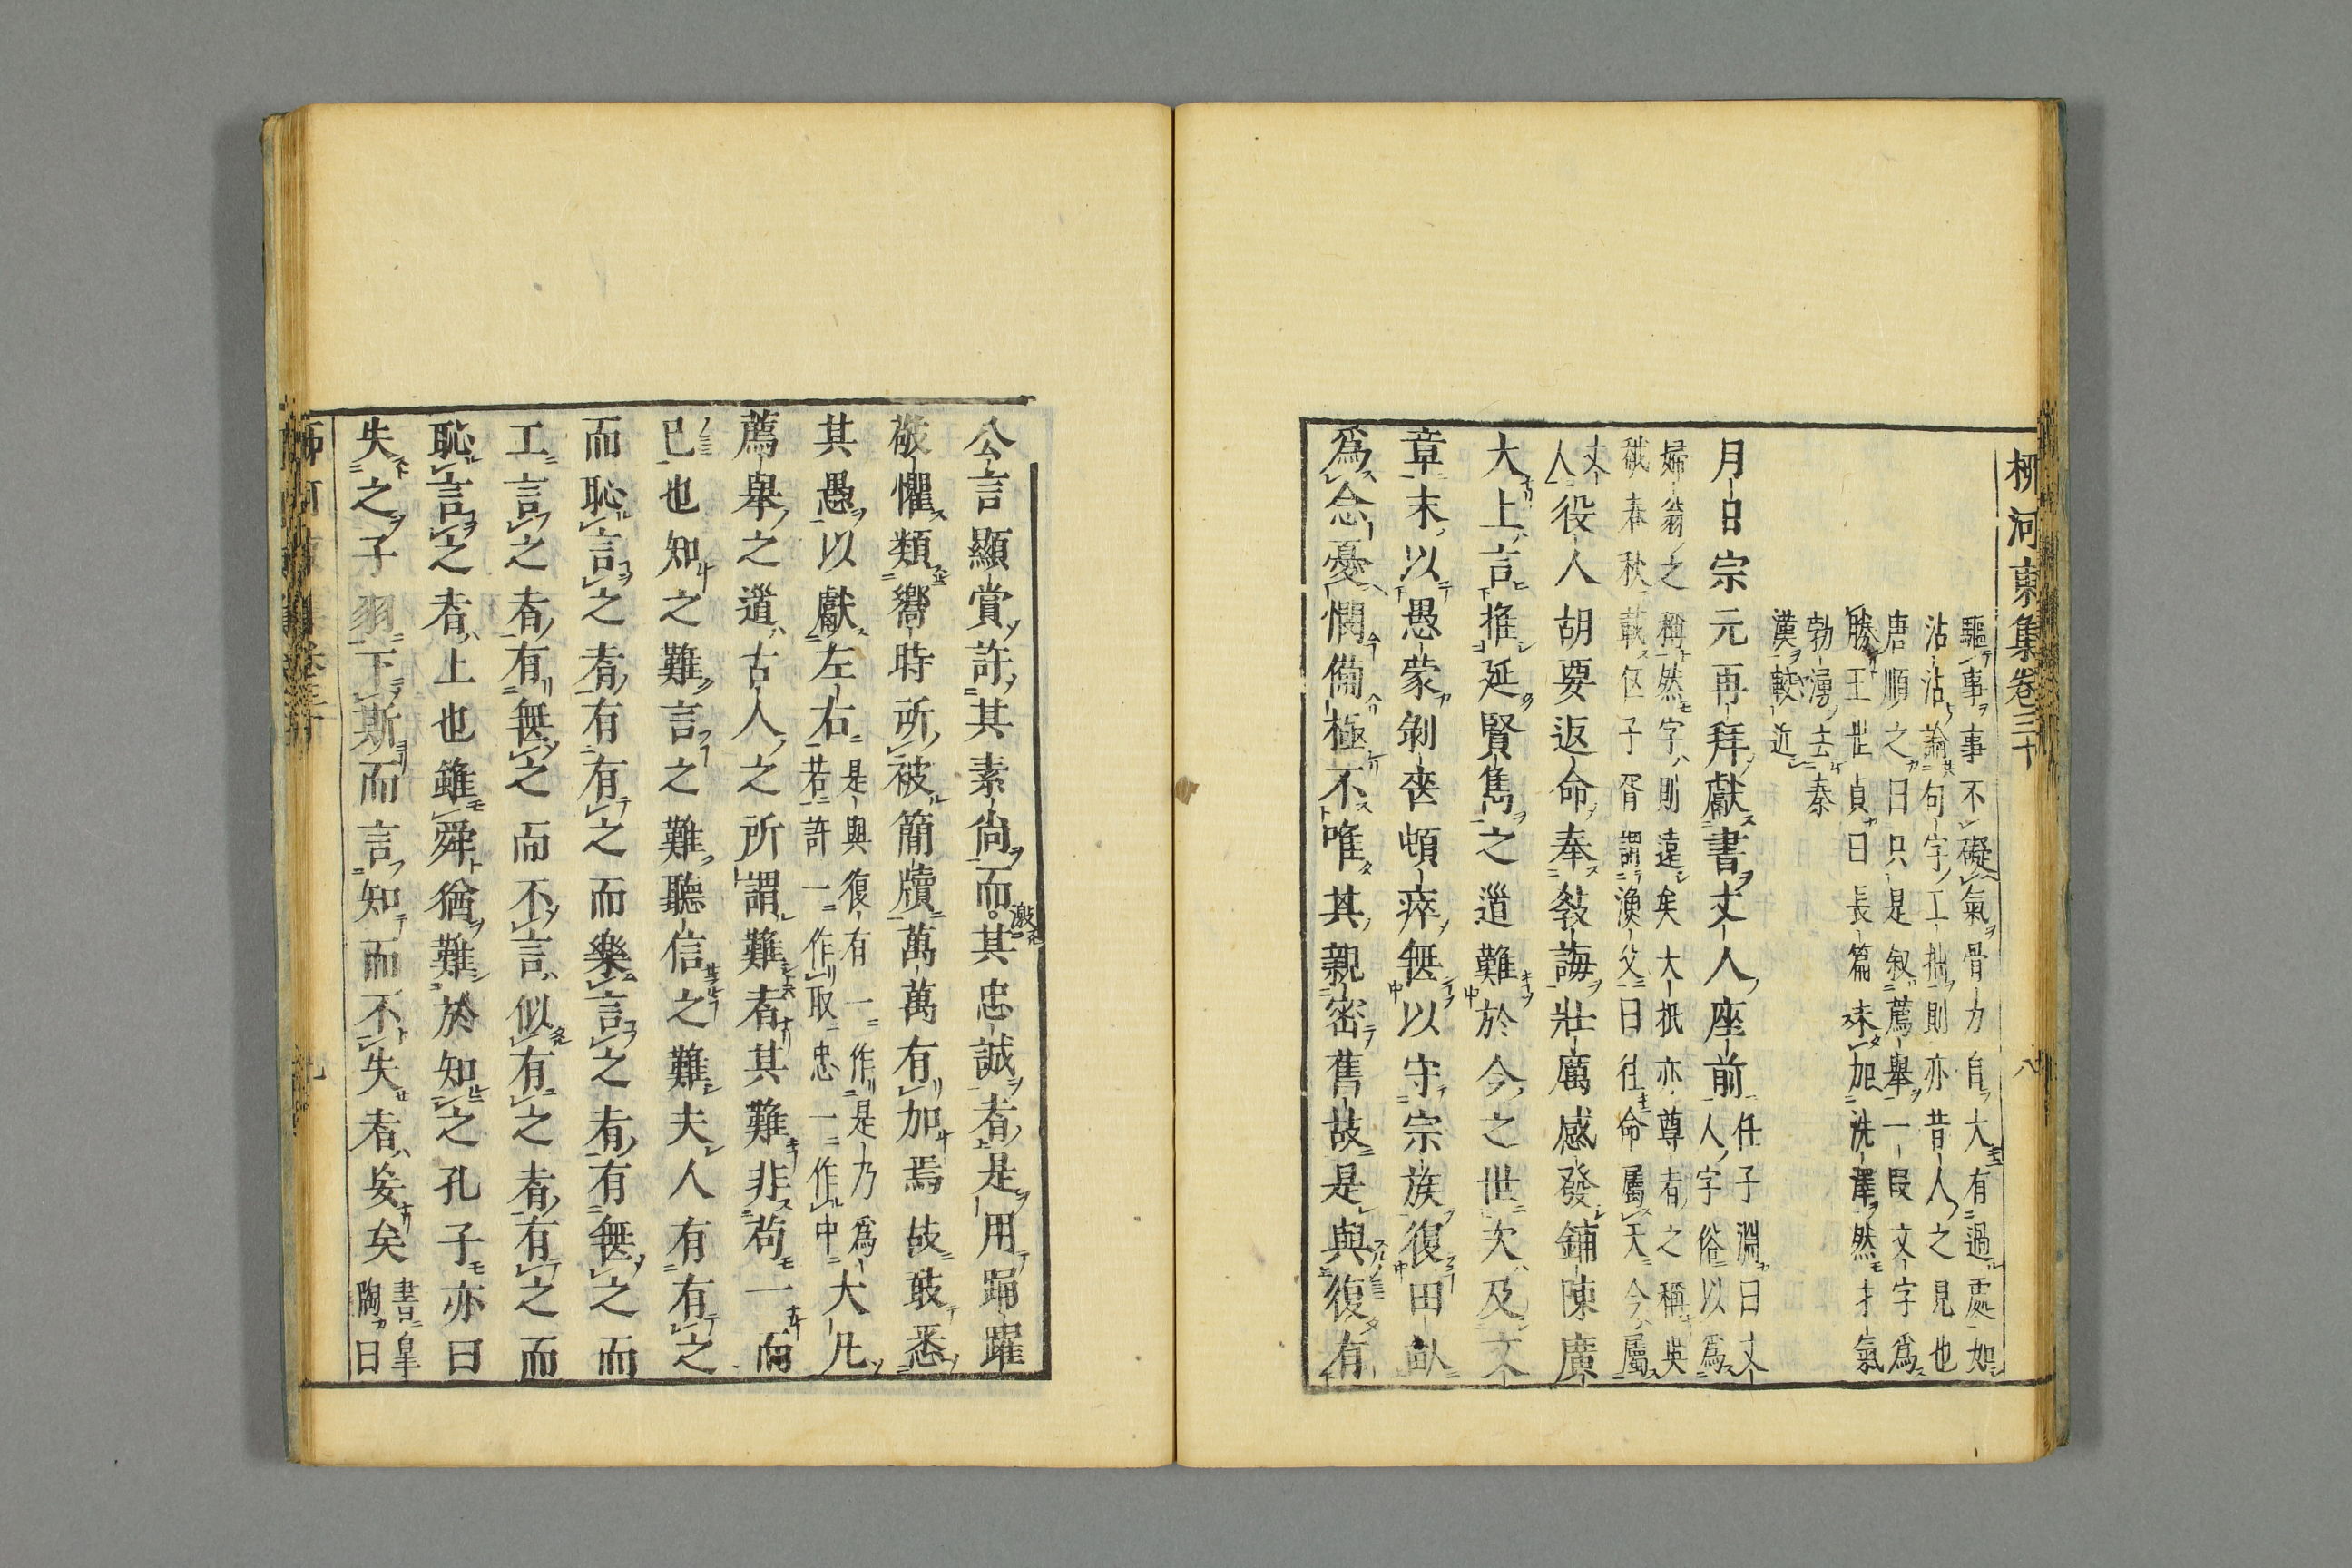 柳河東集卷三十 八
驅事事不礙氣骨力自大有過處如
沾沾論句字工拙則亦昔人之見也
唐順之曰只是叙薦舉一段文字爲
勝王世貞曰長篇未加洗澤然才氣
勃湧去秦
漢較近
月日宗元再拜獻書丈人座前任子淵曰丈
人字俗以爲
婦翁之稱然字則遠矣大抵亦尊者之稱吳
越春秋載伍子胥謂漁父曰往命屬天今屬
丈
人
役人胡要返命奉敎誨壯厲感發鋪陳廣
大上言推延賢雋之道難於今之世次及文
章末以愚蒙剝喪頓瘁無以守宗族復田畝
爲念憂憫備極不唯其親密舊故是與復有
公言顯賞許其素尙而激其忠誠者是用踊躍
敬懼類嚮時所被簡牘萬萬有加焉故敢悉
其愚以獻左右
是與復有一作是乃爲
若許一作取忠一作中
大凡
薦舉之道古人之所謂難者其難非苟一而
已也知之難言之難聽信之難夫人有有之
而恥言之者有有之而樂言之者有無之而
工言之者有無之而不言似有之者有之而
恥言之者上也雖舜猶難於知之孔子亦曰
失之子羽下斯而言知而不失者妄矣書皐
陶曰